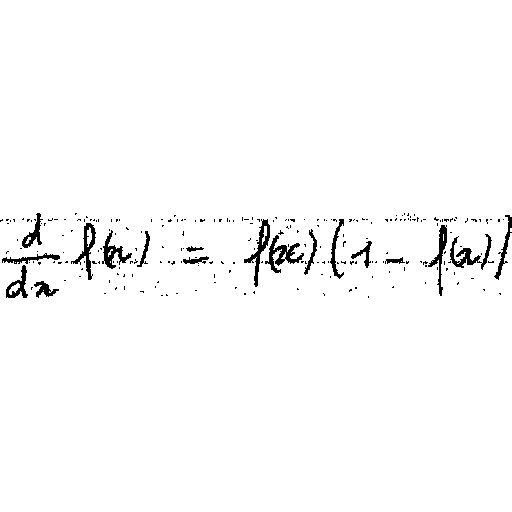 \frac{d}{dx} f(x) = f(x) (1 - f(x))